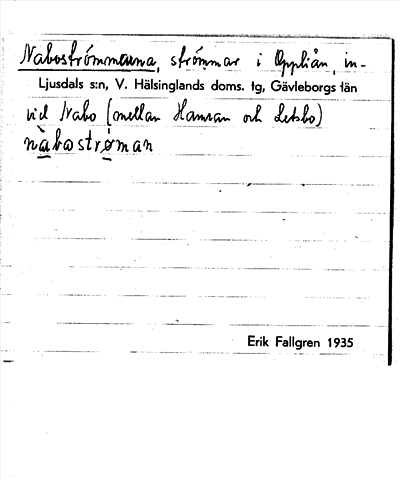 Naboströmmarna, strömmar i Öppliån, in-
Ljusdals s:n, V. Hälsinglands doms. tg, Gävleborgs län
vid Nabo (mellan Hamran och Letsbo)
nàbostrǿman
Erik Fallgren 1935